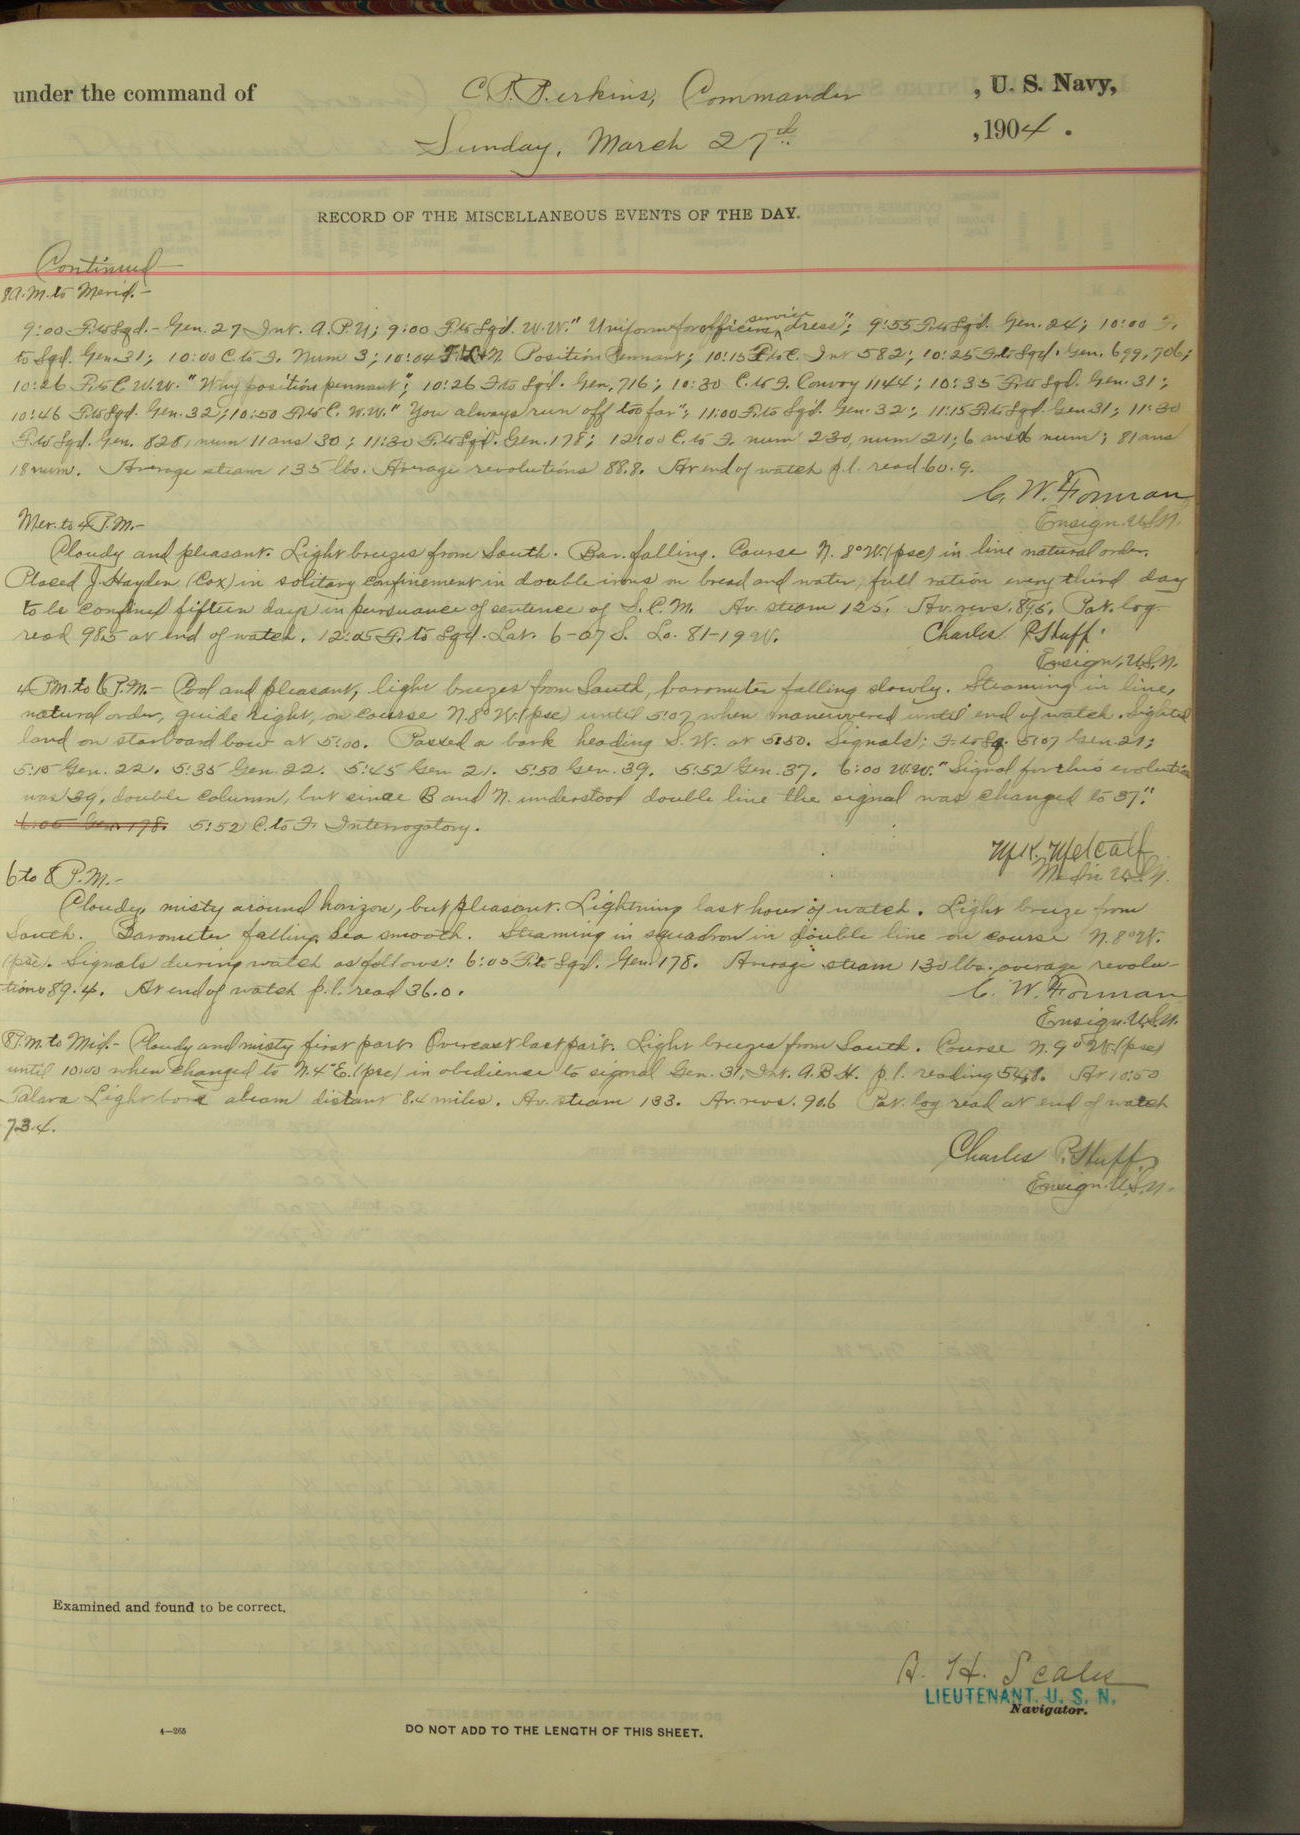 under the command of C. P. Perkins, Commander , U. S. Navy,
Sunday, March 27th. , 1904.
RECORD OF THE MISCELLANEOUS EVENTS OF THE DAY.
Continued
8 A.M. to Merid.-
9:00 F. to Sqd. - Gen. 27 Int. A.P.Y; 9:00 F. to Sq'd. W.W. "Uniform for officers, service dress"; 9:55 F. to Sq'd. Gen. 24; 10:00 F.
to Sqd. Gen. 31; 10:00 C. to F. Num 3; 10:04 F. to N. Position Pennant; 10:15 F. to C. Int 582; 10:25 F. to Sqd. Gen. 699, 706;
10:26 F. to C. W.W. "Why position pennant"; 10:26 F. to Sq'd. Gen. 716; 10:30 C. to F. Convoy 1144; 10:35 F. to Sqd. Gen. 31;
10:46 F. to Sqd. Gen. 32; 10:50 F. to C. W.W. "You always run off too far"; 11:00 F. to Sq'd. Gen. 32; 11:15 F. to Sqd. Gen 31; 11:30
F. to Sqd. Gen. 828, num 11 ans 30; 11:30 F. to Sq'd. Gen. 178; 12:00 C. to F. num 230, num 21; 6 ans num; 81 ans
18 num. Average steam 135 lbs. Average revolutions 88.8. At end of watch p.l. read 60.9.
C. W. Forman
Ensign. U.S.N.
Mer. to 4 P.M.-
Cloudy and pleasant. Light breezes from South. Bar. falling. Course N. 8° W. (psc) in line natural order.
Placed J. Hayden (Cox) in solitary confinement in double irons on bread and water, full ration every third day
to be confined fifteen days in pursuance of sentence of S.C.M. Av. steam 125. Av. revs. 89.5. Pat. log
read 98.5 at end of watch. 12:05 F. to Sqd. Lat. 6-07 S. Lo. 81-19 W. Charles P. Huff.
Ensign, U.S.N.
4 P.M. to 6 P.M.- Cool and pleasant, light breezes from South, barometer falling slowly. Steaming in line,
natural order, guide right, on course N. 8° W. (psc) until 5:07 when maneuvered until end of watch. Sighted
land on starboard bow at 5:00. Passed a bark heading S.W. at 5:50. Signals; F. to Sq. 5:07 Gen. 21;
5:15 Gen. 22. 5:35 Gen. 22. 5:45 Gen 21. 5:50 Gen. 39. 5:52 Gen. 37. 6:00 W.W. "Signal for this evolution
was 39, double column, but since B and N. understood double line the signal was changed to 37."
6:05 Gen. 178. 5:52 C. to F. Interrogatory.
M.K. Metcalf
Mdn U.S.N.
6 to 8 P.M.-
Cloudy, misty around horizon, but pleasant. Lightning last hour of watch. Light breeze from
South. Barometer falling. Sea smooth. Steaming in squadron in double line on course N. 8° W.
(psc). Signals during watch as follows: 6:05 F. to Sqd. Gen. 178. Average steam 130 lbs. average revolu-
tions 89.4. At end of watch p.l. read 36.0. C. W. Forman
Ensign. U.S.N.
8 P.M. to Mid.- Cloudy and misty first part. Overcast last part. Light breezes from South. Course N. 9° W. (psc)
until 10:00 when changed to N. 4° E. (psc) in obedience to signal Gen. 31, Int. A.B.H. p.l. reading 54.8. At 10:50
Palara Light bore abeam distant 8.4 miles. Av. steam 133. Av. revs. 90.6 Pat. log read at end of watch
73.4.
Charles P. Huff.
Ensign. U.S.N.
Examined and found to be correct.
A. H. Scales
LIEUTENANT, U. S. N.
Navigator.
4—265
DO NOT ADD TO THE LENGTH OF THIS SHEET.